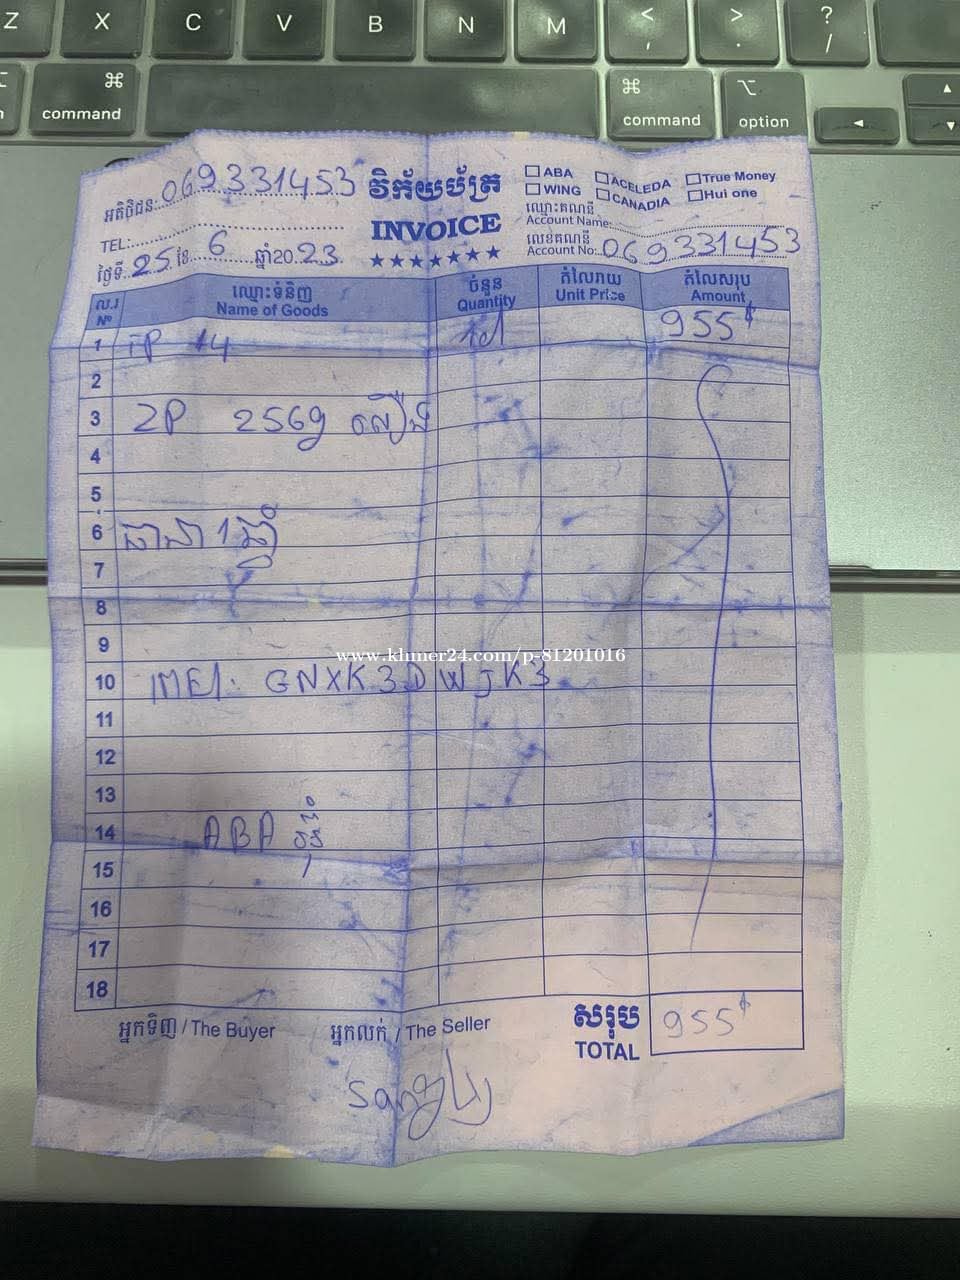 Z X C V B N M < , > . ? /
⌘ command ⌘ command ⌥ option ◄ ▲ ▼
អតិថិជន: 069331453
TEL:
ថ្ងៃទី 25 ខែ 6 ឆ្នាំ20 23
វិក័យប័ត្រ
INVOICE
★★★★★★★
ABA ACELEDA True Money
WING CANADIA Hui one
ឈ្មោះគណនី
Account Name:
លេខគណនី
Account No: 069331453
ល.រ ឈ្មោះទំនិញ ចំនួន តំលៃរាយ តំលៃសរុប
Nº Name of Goods Quantity Unit Price Amount
1 iP 14 955$
2
3 ZP 256g លឿង
4
5
6 ធានា 1 ឆ្នាំ
7
8
9
www.khmer24.com/p-81201016
10 IMEI: GNXK3DWJK3
11
12
13
14 ABA
15
16
17
18
អ្នកទិញ / The Buyer អ្នកលក់ / The Seller សរុប
TOTAL 955$